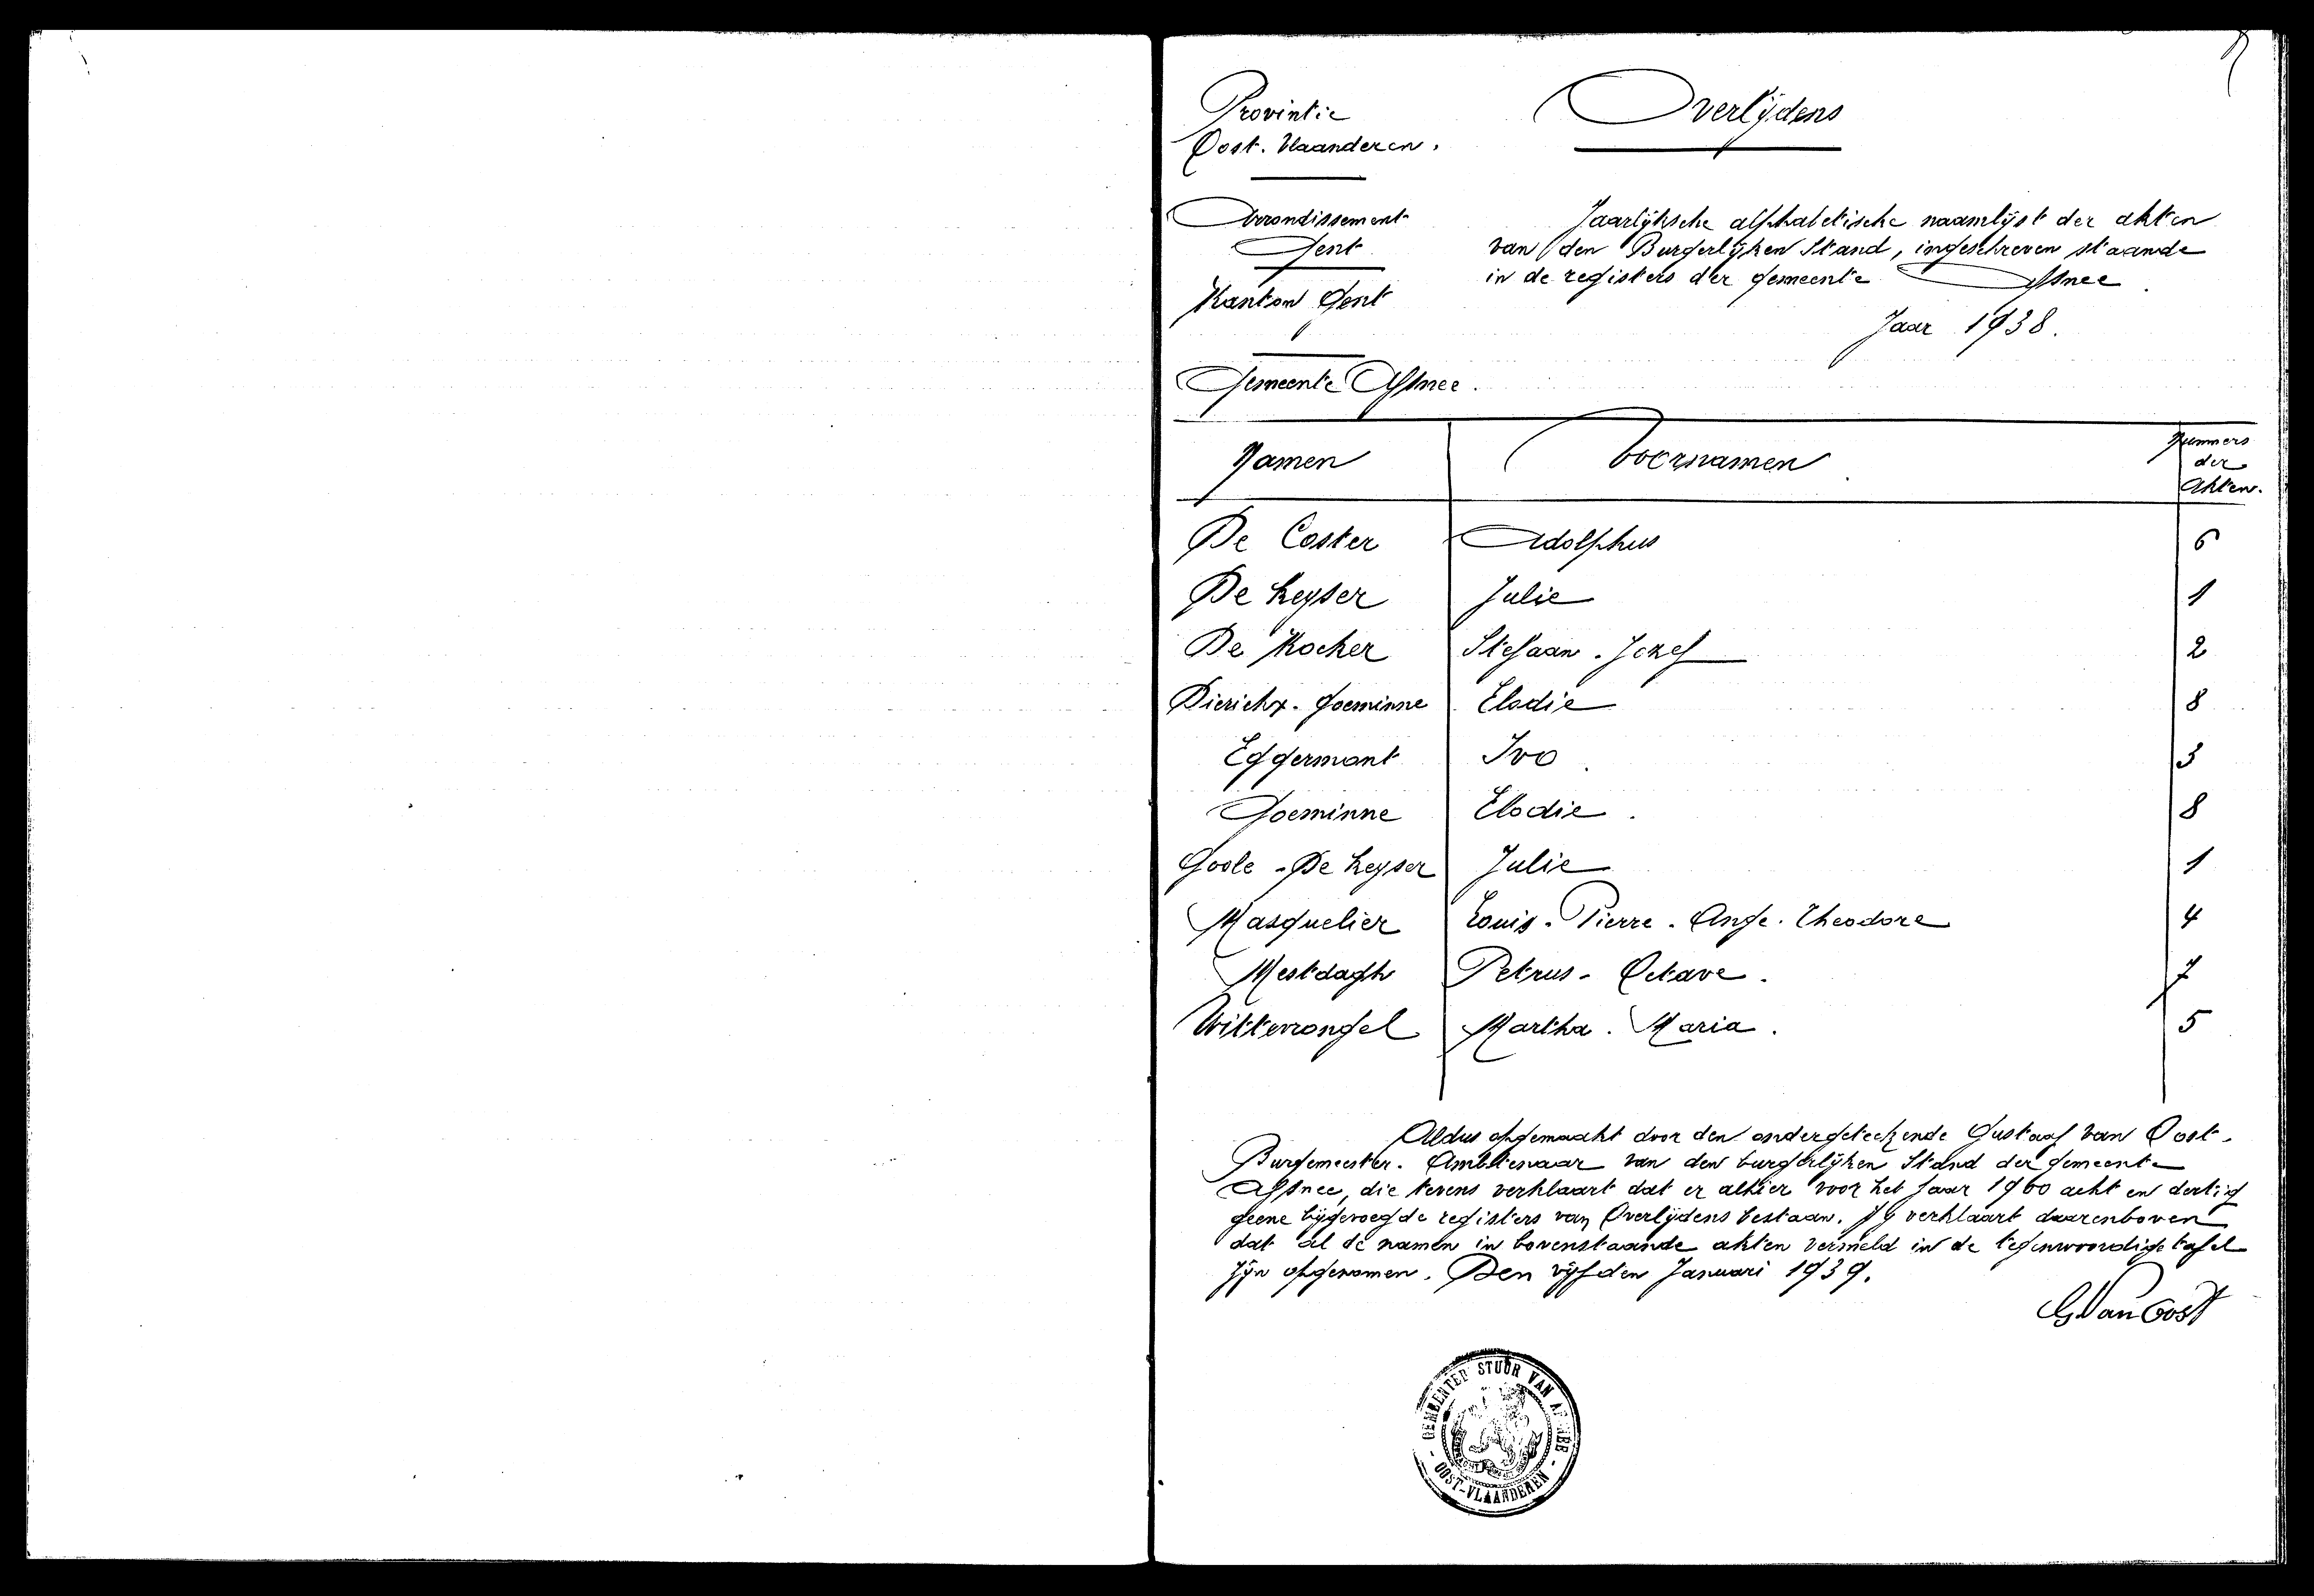 Overlijdens
Provintie
Oost. Vlaanderen.
Arrondissement
Gent
Kanton Gent
Gemeente Afsnee.
Jaarlijksche alphabetische naamlijst der akten
van den Burgerlijken Stand, ingeschreven staande
in de registers der gemeente Afsnee.
Jaar 1938.
Namen Voornamen Nummers
der
Akten.
De Coster Adolphus 6
De Keyser Julie 1
De Kocker Stefaan. Jozef 2
Dierickx. Goeminne Elodie 8
Eggermont Ivo 3
Goeminne Elodie. 8
Goole - De Keyser Julie 1
Masquelier Louis. Pierre. Ange. Theodore 4
Mestdagh Petrus - Octave. 7
Wittevrongel Martha. Maria. 5
Aldus opgemaakt door den ondergeteekende Gustaaf Van Oost.
Burgemeester. Ambtenaar van den burgerlijken Stand der gemeente
Afsnee, die tevens verklaart dat er alhier voor het jaar 19 acht en dertig
geene bijgevoegde registers van Overlijdens bestaan. Hij verklaart daarenboven
dat al de namen in bovenstaande akten vermeld in de tegenwoordige tafel
zijn opgenomen. Den vijfden Januari 1939.
G Van Oost
GEMEENTEB STUUR VAN AF NEE
OOST-VLAANDEREN